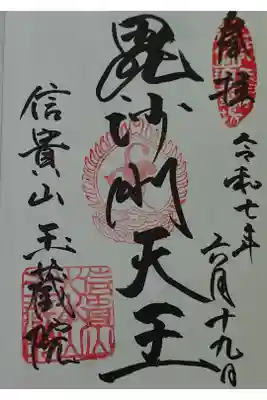 奉拝
令和七年
六月十九日
毘沙門天王
信貴山
玉蔵院